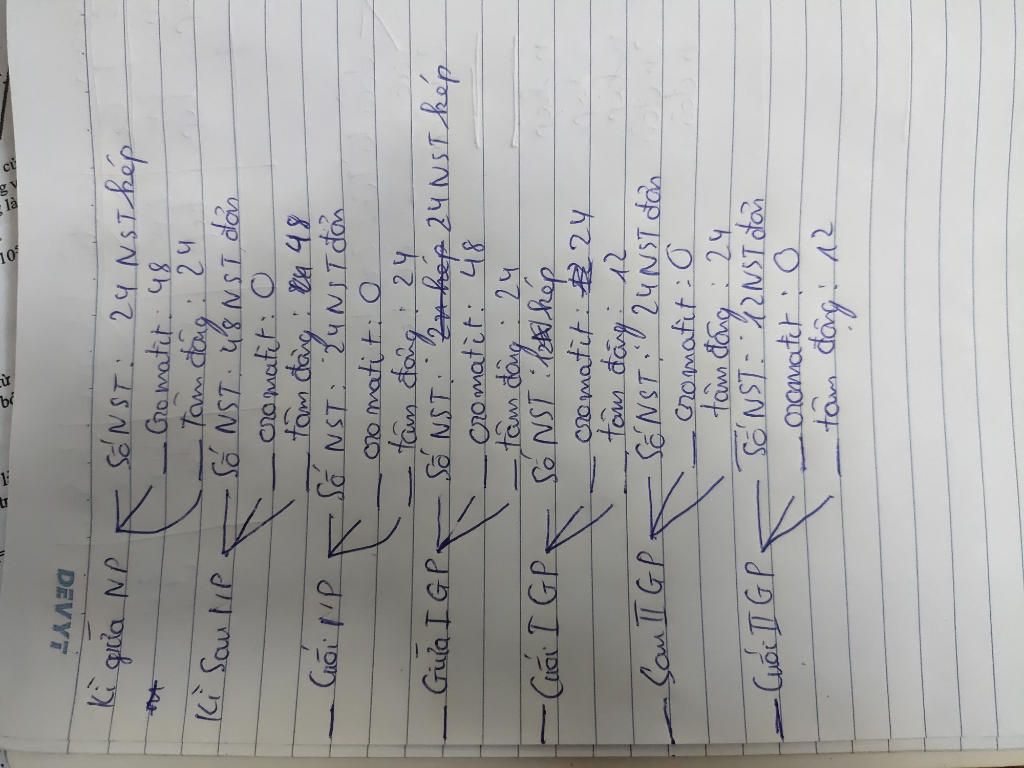 DEVYT
Kì giữa NP
Số NST: 24 NST kép
Cromatit: 48
Tâm động: 24
Kì Sau NP
Số NST: 48 NST đơn
cromatit: 0
tâm động: 48
Cuối NP
Số NST: 24 NST đơn
cromatit: 0
tâm động: 24
Giữa I GP
Số NST: 24 NST kép
cromatit: 48
tâm động: 24
Cuối I GP
Số NST: 12 kép
cromatit: 24
tâm động: 12
Sau II GP
Số NST: 24 NST đơn
cromatit: 0
tâm động: 24
Cuối II GP
Số NST: 12 NST đơn
cromatit: 0
tâm động: 12